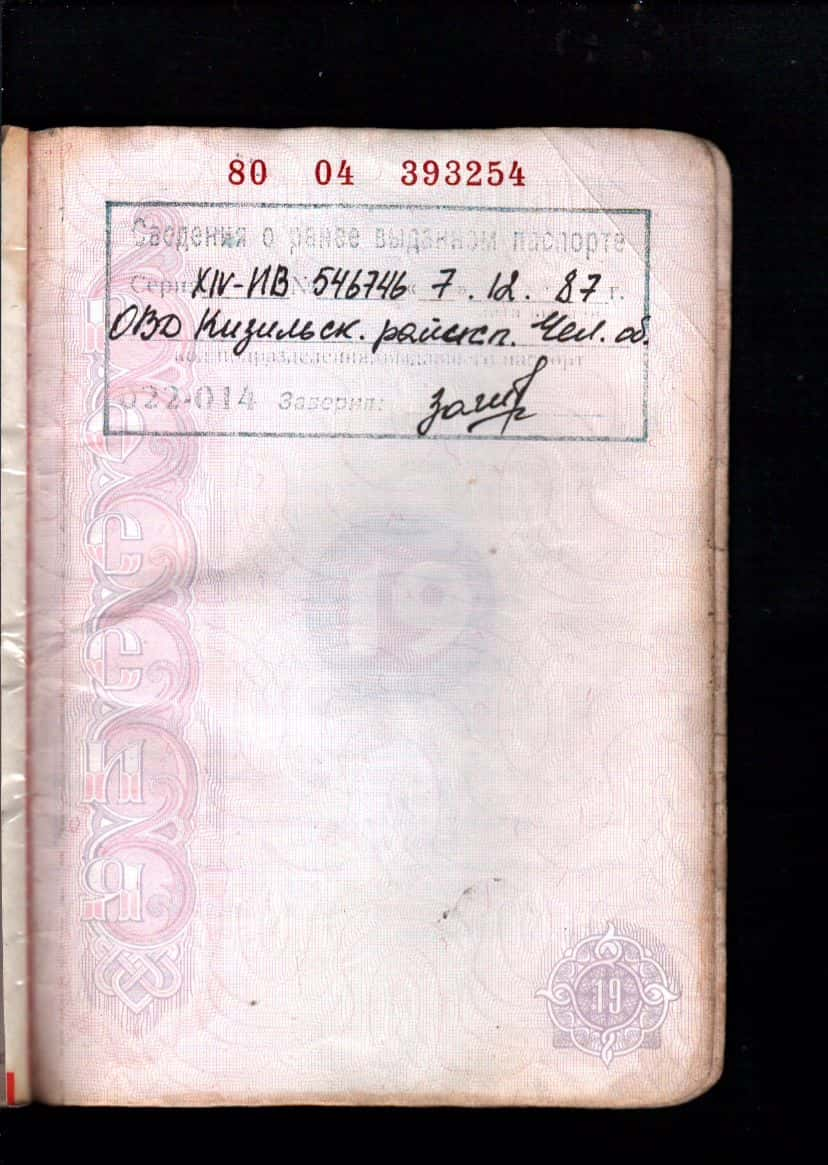 80 04 393254
Сведения о ранее выданном паспорте
Серия XIV-ИВ № 546746 « 7 » . 12 . 87 г.
ОВД Кизильск. райисп. Чел. об.
код подразделения, выдавшего паспорт
022-014 Заверил:
19
РОССИЯ
19